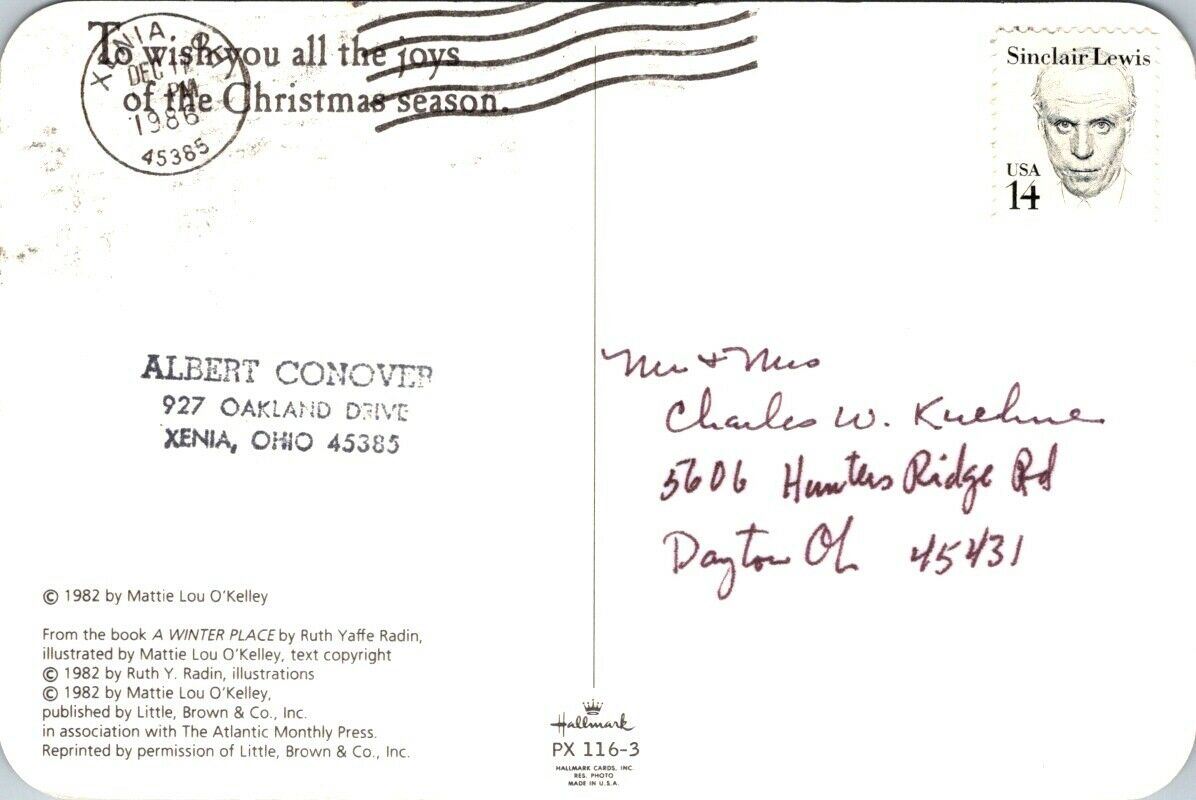 To wish you all the joys
of the Christmas season.
XENIA, OH
DEC 11
PM
1986
45385
Sinclair Lewis
USA
14
ALBERT CONOVER
927 OAKLAND DRIVE
XENIA, OHIO 45385
Mr + Mrs
Charles W. Kuehne
5606 Hunters Ridge Rd
Dayton Oh 45431
© 1982 by Mattie Lou O'Kelley
From the book A WINTER PLACE by Ruth Yaffe Radin,
illustrated by Mattie Lou O'Kelley, text copyright
© 1982 by Ruth Y. Radin, illustrations
© 1982 by Mattie Lou O'Kelley,
published by Little, Brown & Co., Inc.
in association with The Atlantic Monthly Press.
Reprinted by permission of Little, Brown & Co., Inc.
Hallmark
PX 116-3
HALLMARK CARDS, INC.
RES. PHOTO
MADE IN U.S.A.